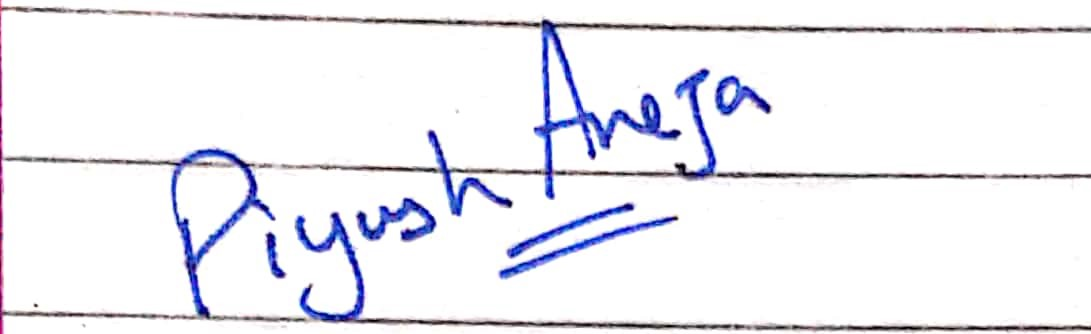 Piyush Aneja